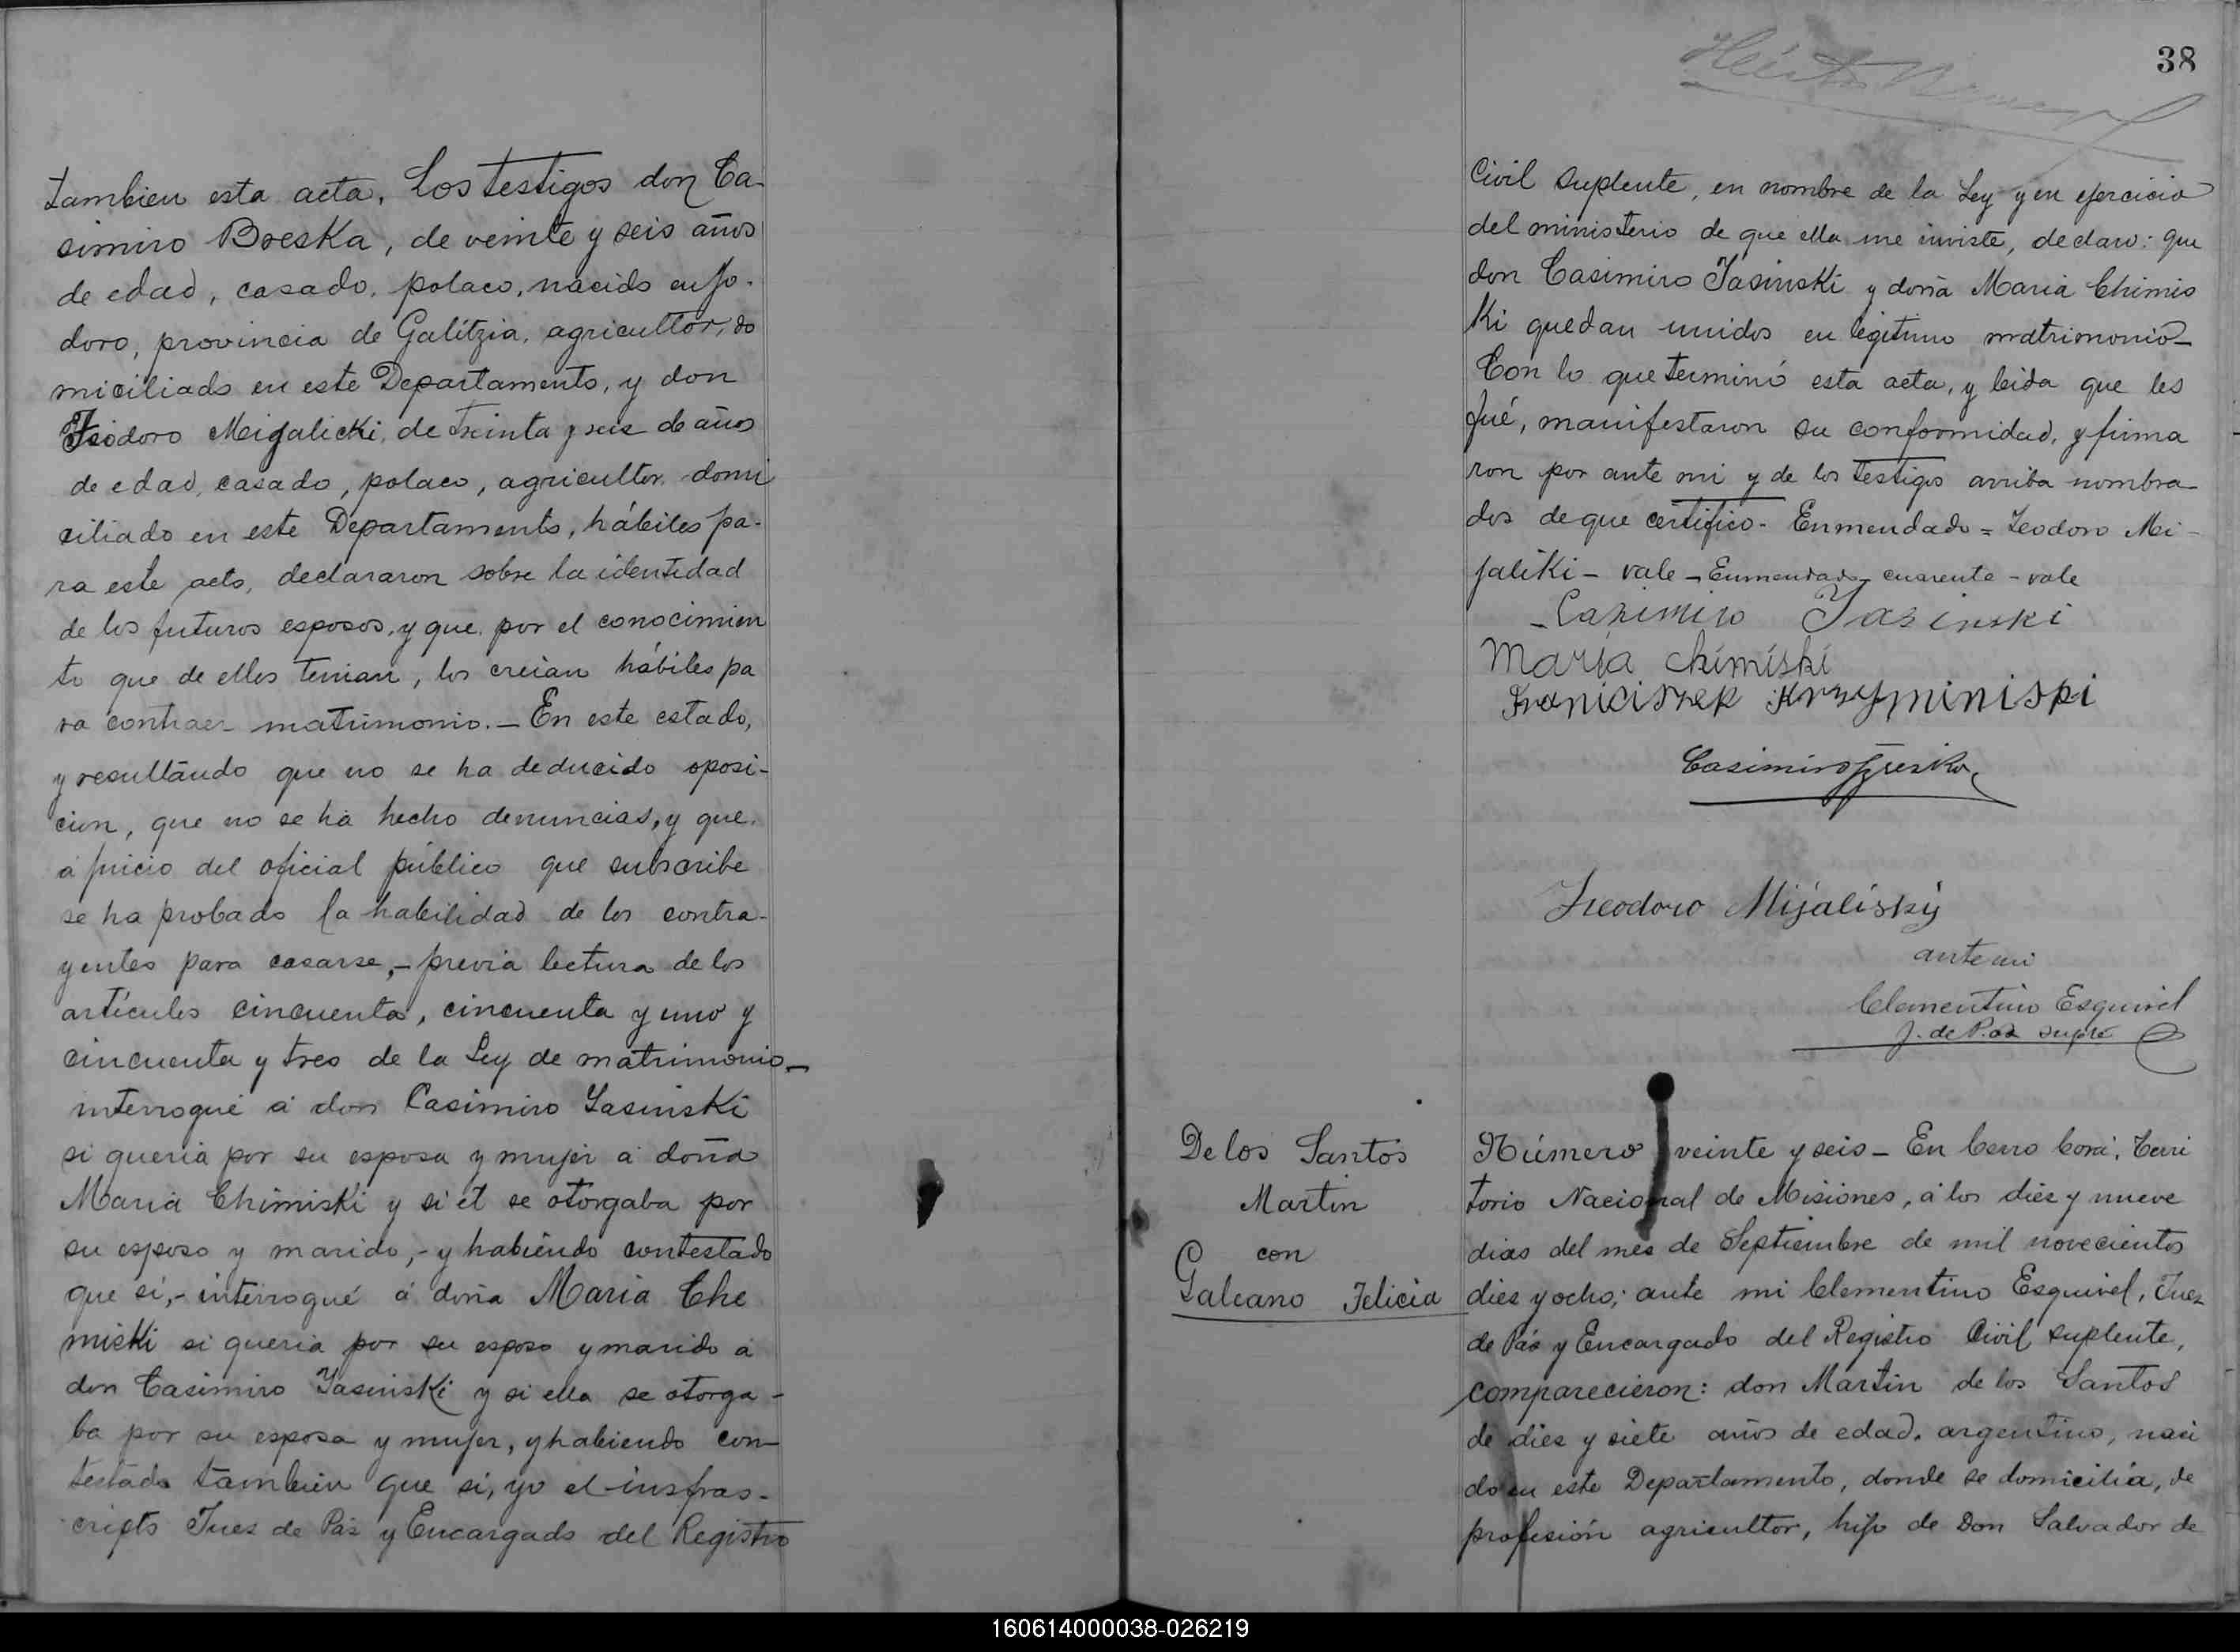 tambien esta acta. Los testigos don Ca-
simiro Breska, de veinte y seis años
de edad, casado, polaco, nacido en Jo-
doro, provincia de Galitzia, agricultor, do
miciliado en este Departamento, y don
Teodoro Mijalicki, de treinta y seis de años
de edad, casado, polaco, agricultor, domi
ciliado en este Departamento, hábiles pa-
ra este acto, declararon sobre la identidad
de los futuros esposos, y que, por el conocimien
to que de ellos tenian, los creian hábiles pa
ra contraer matrimonio. — En este estado,
y resultando que no se ha deducido oposi-
cion, que no se ha hecho denuncias, y que,
á juicio del oficial público que subscribe
se ha probado la habilidad de los contra-
yentes para casarse, - previa lectura de los
artículos cincuenta, cincuenta y uno y
cincuenta y tres de la Ley de matrimonio —
interrogué á don Casimiro Yasinski
si queria por su esposa y mujer á doña
Maria Chimiski y si él se otorgaba por
su esposo y marido, - y habiendo contestado
que sí, - interrogué á doña Maria Che
miski si queria por su esposo y marido á
don Casimiro Yasinski y si ella se otorga-
ba por su esposa y mujer, y habiendo con-
testado tambien que si, yo el insfras-
cripto Jues de Pás y Encargado del Registro
38
Civil Suplente, en nombre de la Ley y en ejercicio
del ministerio de que ella me inviste, declaro: que
don Casimiro Yasinski y doña Maria Chimis
ki quedan unidos en legitimo matrimonio —
Con lo que terminó esta acta, y leida que les
fué, manifestaron su conformidad, y firma
ron por ante mi y de los testigos arriba nombra-
dos de que certifico - Enmendado = Teodoro Mi-
jaliki - vale - Enmendado - cuarenta - vale
Casimiro Yasinski
Maria Chimiski
Casimiro Breska
Teodoro Mijalisky
ante mi
Clementino Esquivel
J. de Paz supte
De los Santos
Martin
con
Galeano Felicia
Número veinte y seis — En Cerro Corá, Terri
torio Nacional de Misiones, á los diez y nueve
dias del mes de Septiembre de mil novecientos
diez y ocho; ante mi Clementino Esquivel, Juez
de Pás y Encargado del Registro Civil suplente,
comparecieron: don Martin de los Santos
de diez y siete años de edad, argentino, naci
do en este Departamento, donde se domicilia, de
profesión agricultor, hijo de Don Salvador de
160614000038-026219